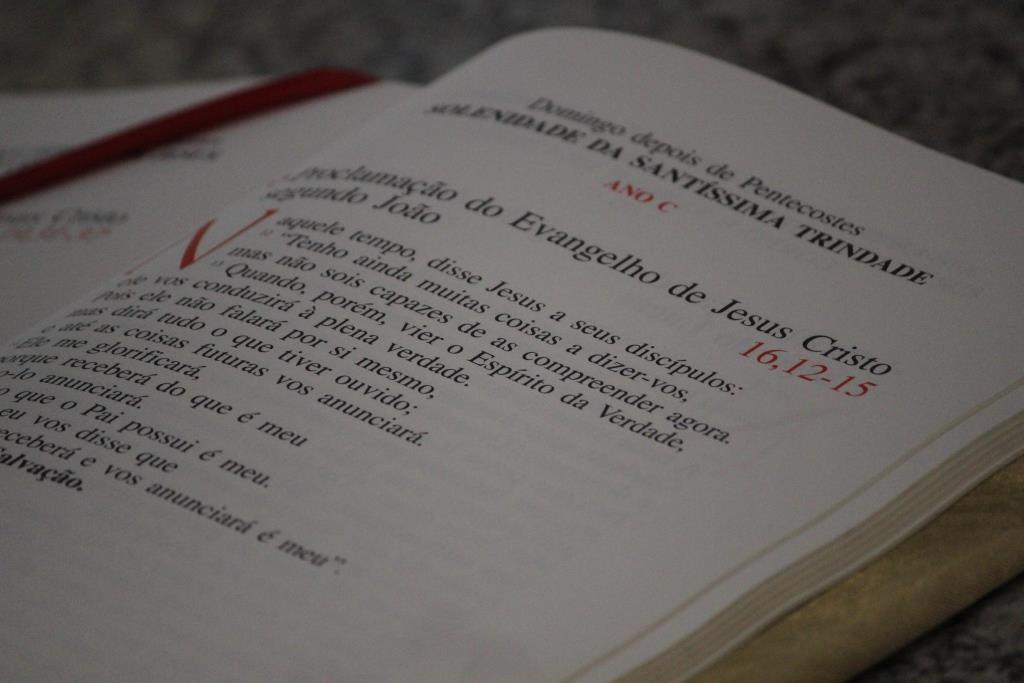 Domingo depois de Pentecostes
SOLENIDADE DA SANTÍSSIMA TRINDADE
ANO C
Proclamação do Evangelho de Jesus Cristo
segundo João
16,12-15
Naquele tempo, disse Jesus a seus discípulos:
12 "Tenho ainda muitas coisas a dizer-vos,
mas não sois capazes de as compreender agora.
13 Quando, porém, vier o Espírito da Verdade,
ele vos conduzirá à plena verdade.
pois ele não falará por si mesmo,
mas dirá tudo o que tiver ouvido;
e até as coisas futuras vos anunciará.
Ele me glorificará,
porque receberá do que é meu
anunciará.
o que o Pai possui é meu.
eu vos disse que
receberá e vos anunciará é meu".
Salvação.